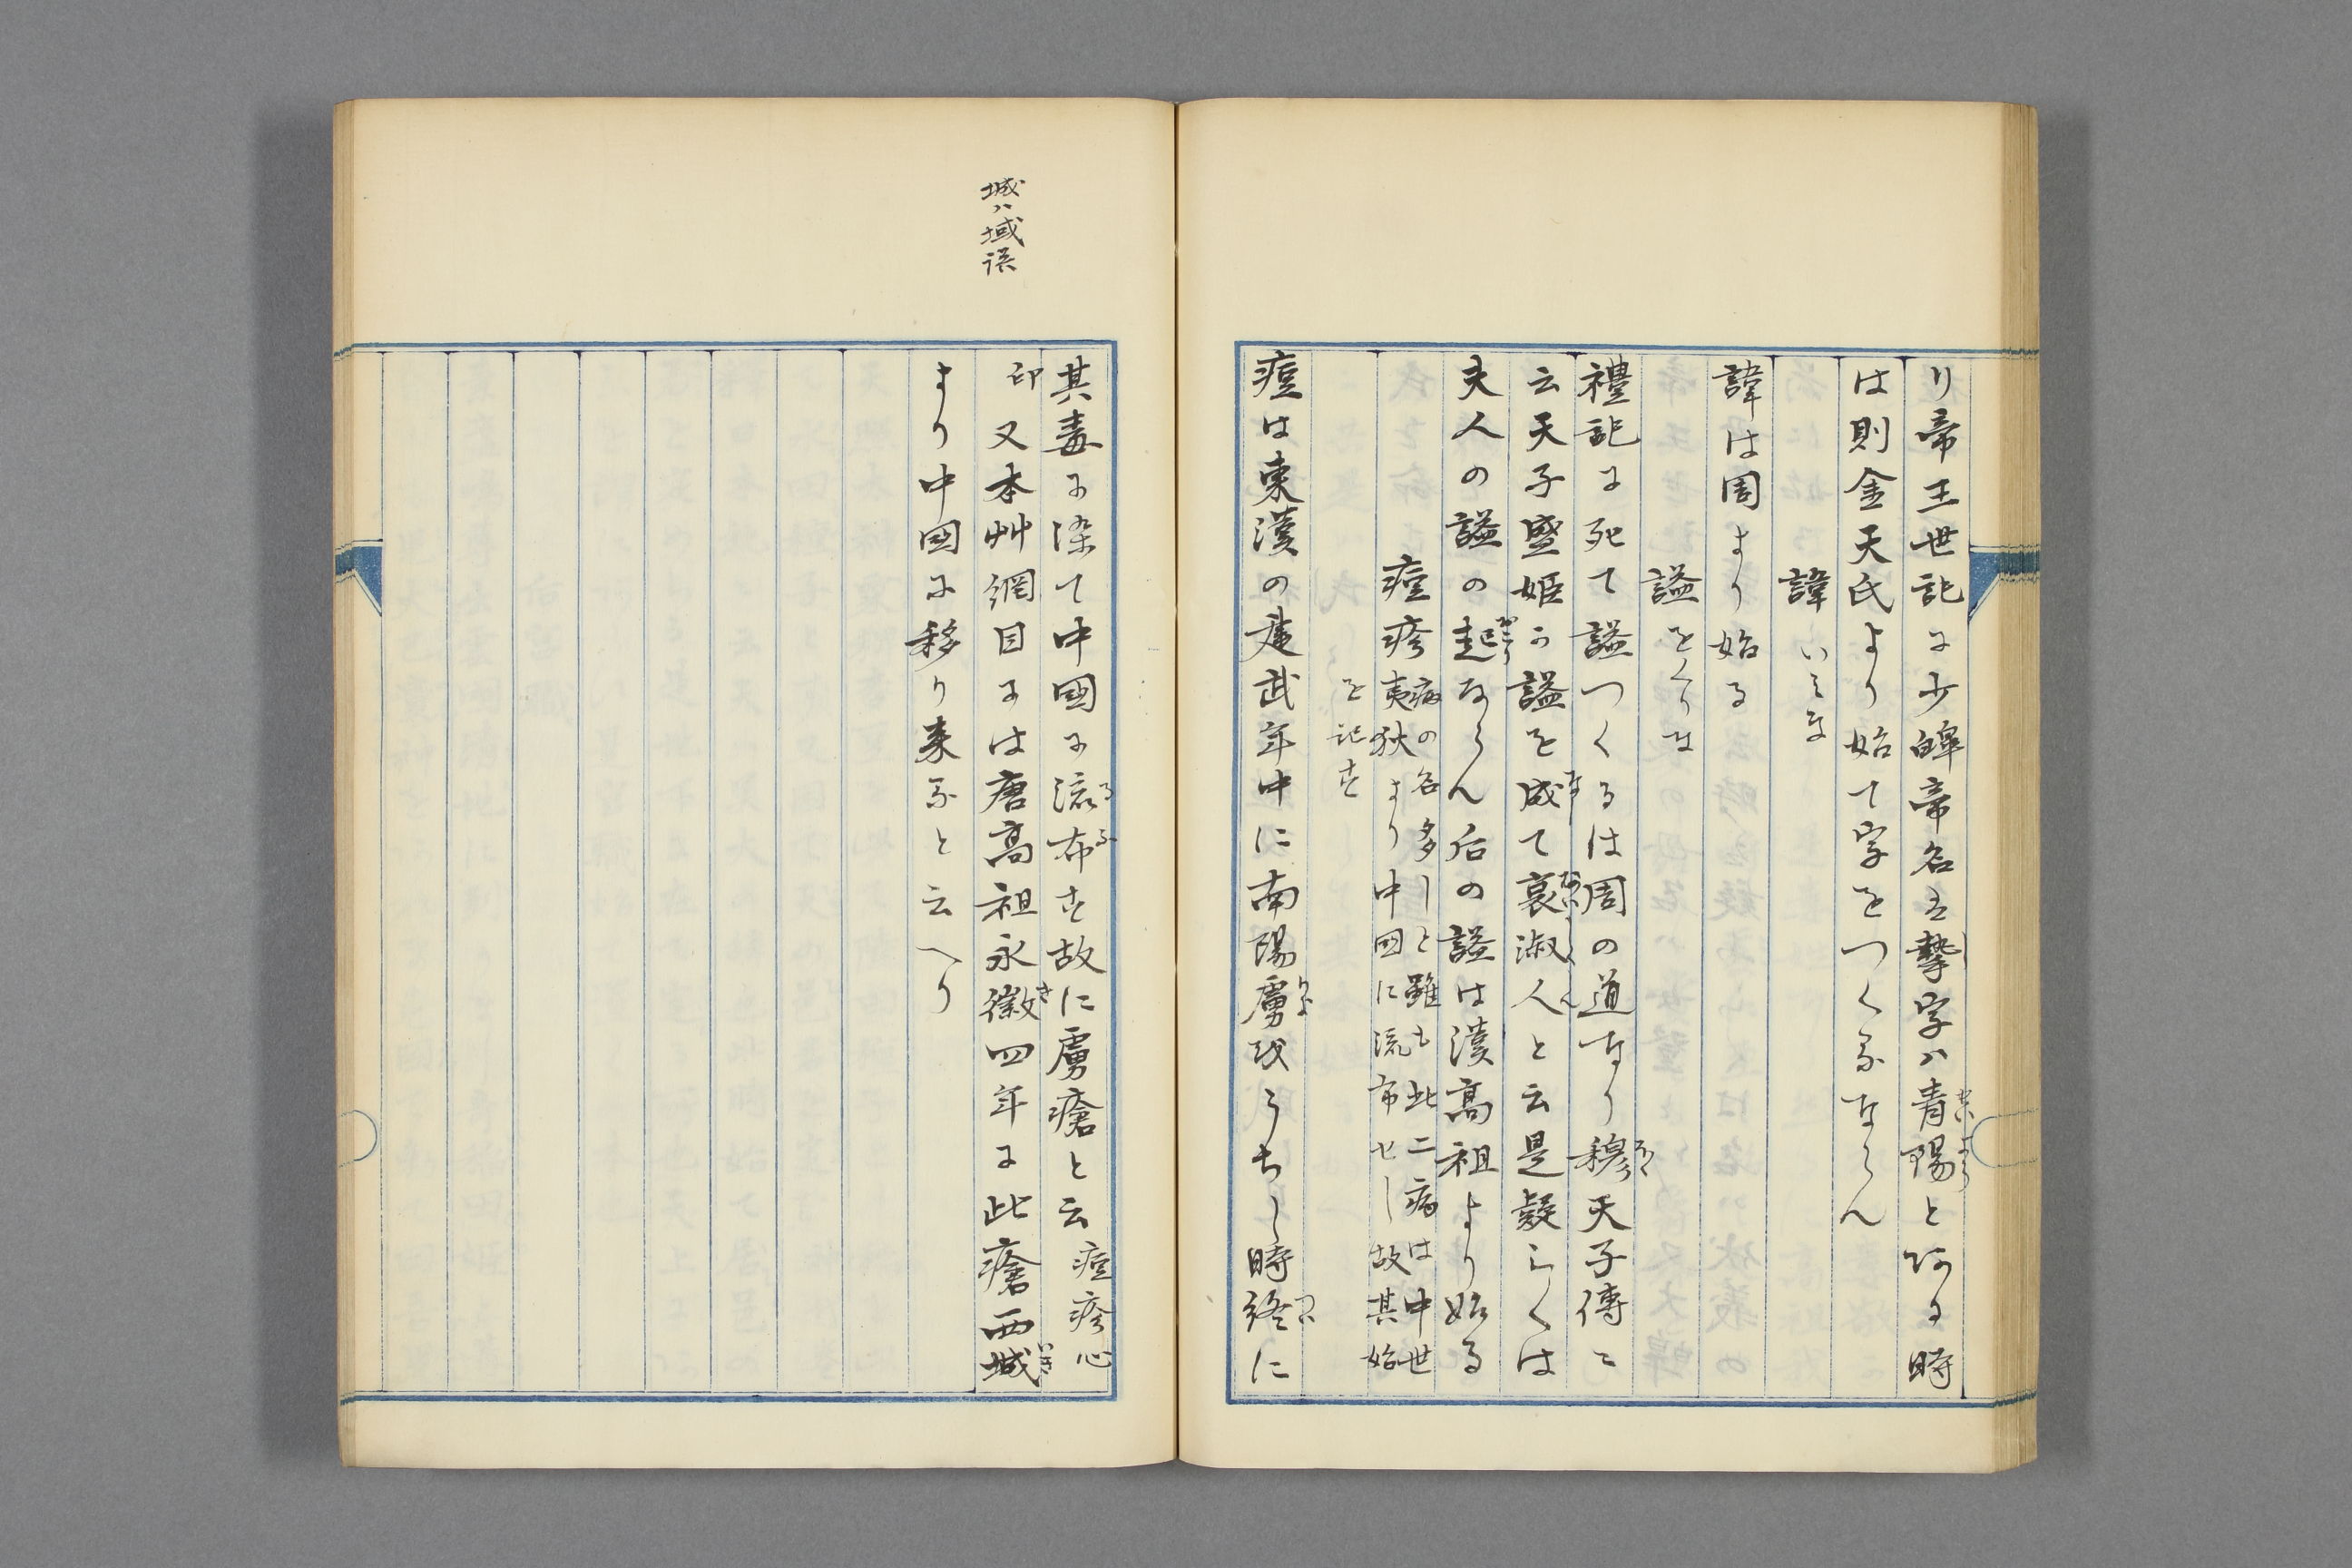 り帝王世記に少皞帝名は摯字ハ青陽とある時
は則金天氏より始て字をつくるならん
諱いミな
諱は周より始る
謚をくりな
禮記に死て謚つくるは周の道なり穆天子傳に
云天子盛姫か謚を成て哀淑人と云是疑らくは
夫人の謚の起ならん后の謚は漢高祖より始る
痘疹病の名多しと雖も此二病は中世
夷狄より中国に流布せし故其始
を記す
痘は東漢の建武年中に南陽虜をうちし時終に
城ハ域誤
其毒に染て中國に流布す故に虜瘡と云痘疹心
印
又本艸網目には唐高祖永徽四年に此瘡西城
より中國に移り来ると云へり